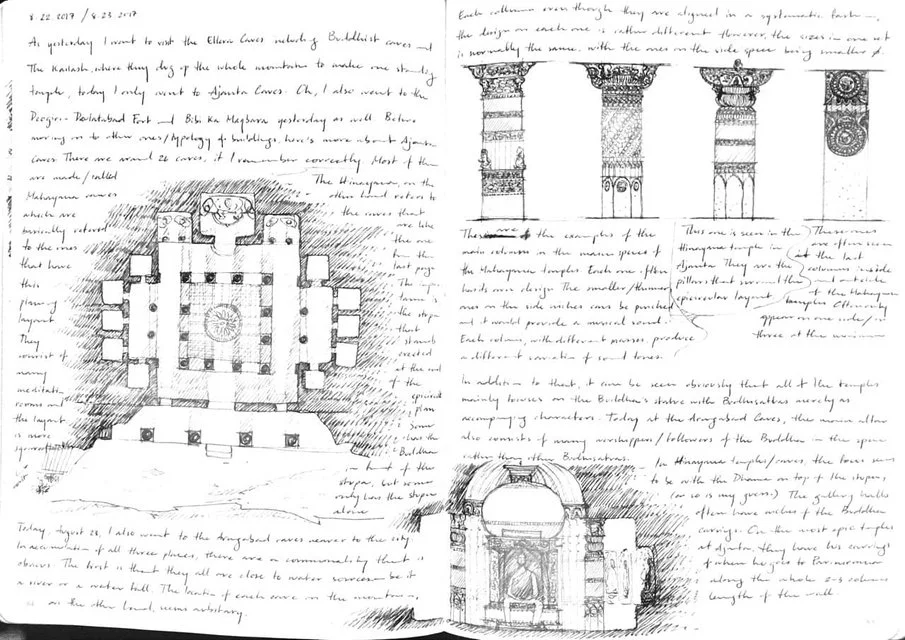 8.22.2017 / 8.23.2017
As yesterday I went to visit the Ellora Caves including Buddhist caves and
The Kailash, where they dug up the whole mountain to make one standing
temple, today I only went to Ajanta Caves. Oh, I also went to the
Deogiri-Daulatabad Fort and Bibi Ka Maqbara yesterday as well. Before
moving on to other ones/typology of buildings, here's more about Ajanta
caves. There are around 26 caves, if I remember correctly. Most of them
are made/called
Mahayana caves
which are
basically referred
to the ones
that have
this
planning
layout
They
consist of
many
meditation
rooms and
the layout
is more
The Hinayana, on the
other hand refers to
the caves that
are like
the one
from the
last page
The
is
the stupa
that
stands
erected
at the end
of the
plan
Some
has the
Buddha
in front of the
stupa, but some
only has the stupa
alone
Today, August 23, I also went to the Aurangabad caves nearer to the city.
In accumulation of all three places, there are a commonality that is
obvious. The first is that they all are close to water sources be it
a river or a water fall. The location of each cave in the mountain,
on the other hand, seems arbitrary.
Each column even though they are aligned in a systematic fashion,
the design on each one is rather different. However, the sizes in one set
is normally the same, with the ones on the side space being smaller
These are the examples of the
main columns in the main spaces of
the Mahayana temples. Each one often
holds own design. The smaller/thinner
ones on the side niches can be punched
and it would provide a musical sound.
Each column, with different masses, produce
a different variation of sound tones.
This one is seen in the
Hinayana temple in
Ajanta. They are the
pillars that surround the
layout
These ones
are often seen
at the last
columns inside
and outside
of the Mahayana
temples. Often only
appear on one side/in
three at the maximum
In addition to that, it can be seen obviously that all of the temples
mainly focuses on the Buddha's statue with Bodhisattvas merely as
accompanying characters. Today at the Aurangabad Caves, the main altar
also consists of many worshippers/followers of the Buddha in the space
rather than other Bodhisattvas.
In Hinayana temples/caves, the focus seems
to be with the Dhamma on top of the stupas,
(or so is my guess.) The gallery walls
often have niches of the Buddha
carvings. On the most epic temples
at Ajanta, they have his carvings
of when he goes to Parinirvana
along the whole
length of the wall.